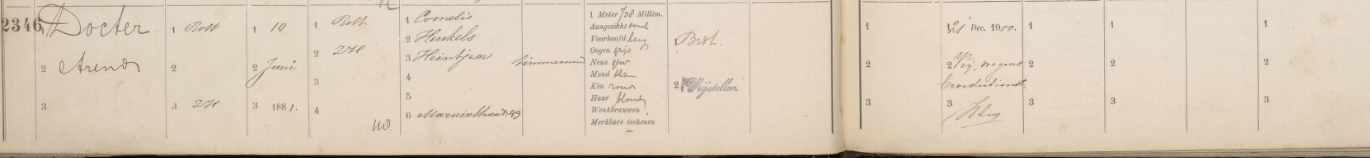 2346
1 Docter
2 Arend
3
1 Rott
2
3 ZH
1 10
2 Juni
3 1881.
1 Rott
2 ZH
3
4
1 Cornelis
2 Heukels
3 Heintjen
4
5
6
timmerman
1 Meter 728 Millim.
Aangezicht ovaal
Voorhoofd laag
Oogen grijs
Neus
Mond
Kin rond
Haar blond
Wenkbrauwen
Merkbare teekenen
2
1
2
3
1 21 Dec. 1900.
2 Vrij, wegens
3
1
2
3
1
2
3
1
2
3